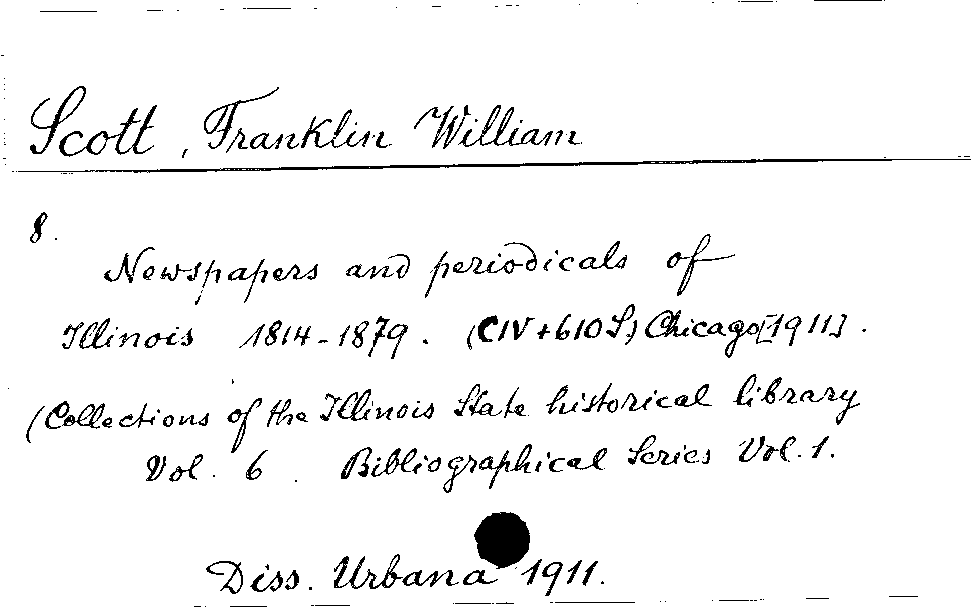 Scott, Franklin William
8.
Newspapers and periodicals of
Illinois 1814-1879. (CIV+610S) Chicago[1911].
(Collections of the Illinois State historical library
Vol. 6. Bibliographical Series Vol. 1.
Diss. Urbana 1911.